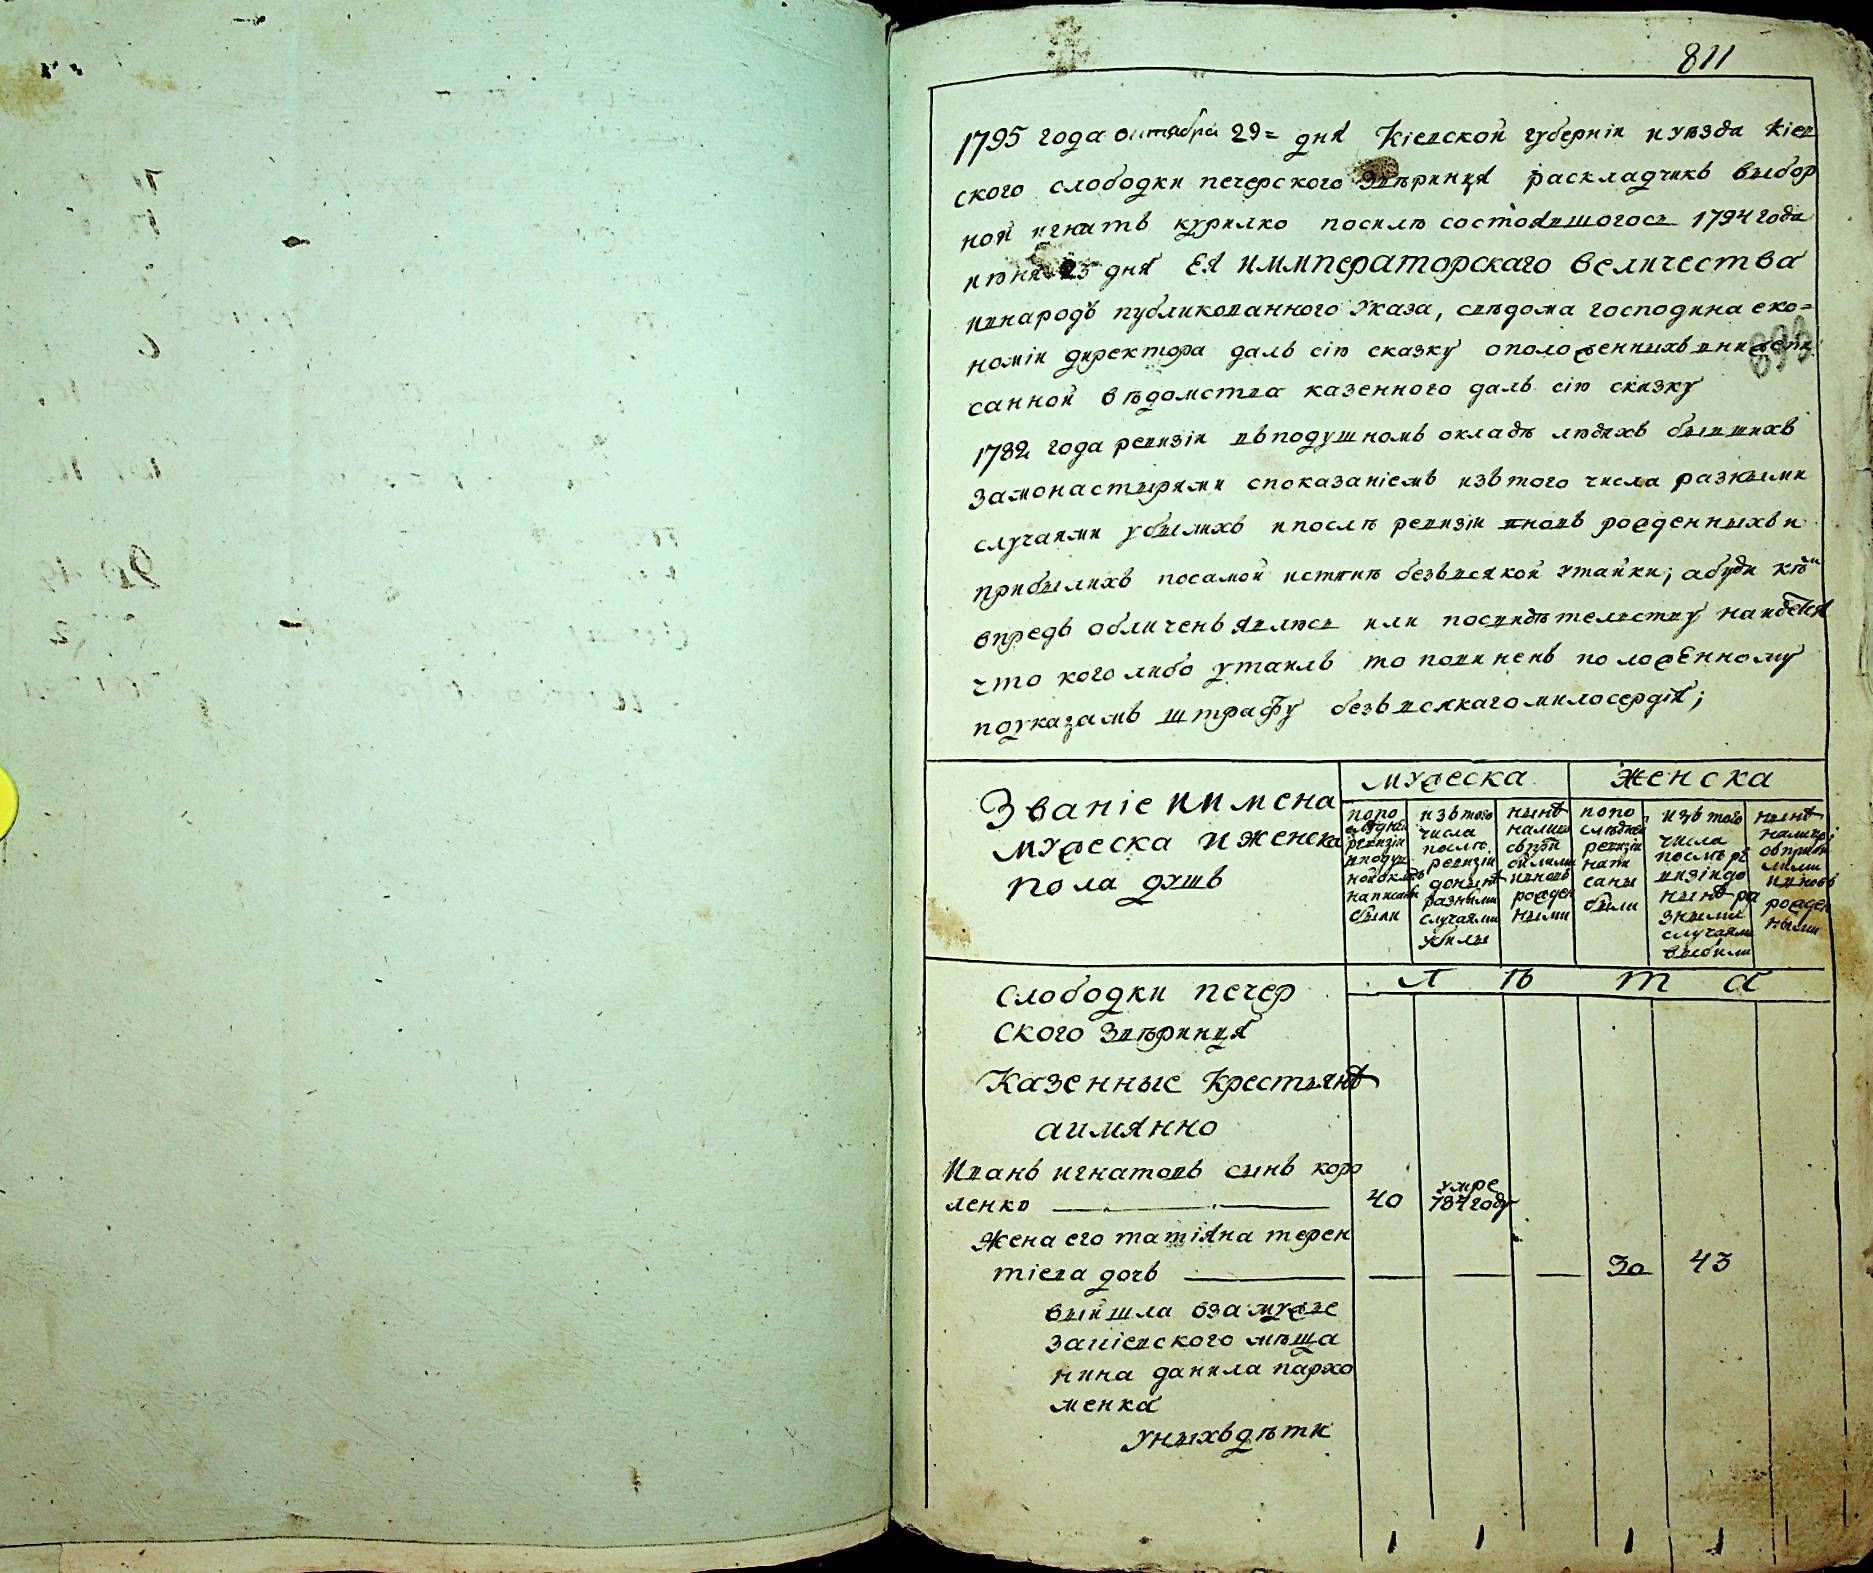 811
1795 года октября 29= дня Кіевской губерніи и уѣзда Кіев
ского слободки печерского Звѣринця раскладчикъ выбор
ной игнатъ курилко посилѣ состоявшогось 1794 года
июня 23 дня ЕЯ ИММПЕРАТОРСКАГО ВЕЛИЧЕСТВА
внародъ публикованного Указа, свѣдома господина еко=
номіи директора далъ сію сказку оположенныхъ
санной вѣдомства казенного далъ сію сказку
1782 года ревизіи въподушномъ окладѣ людяхъ бывшихъ
Замонастырями споказаніемъ изътого числа разными
случаями убылихъ ипослѣ ревизіи вновъ рожденныхъ и
прибылихъ посамой истинѣ безъвсякой утайки; абуди кѣм
впредь обличенъ явлюсь или посвидѣтелству найдется
что кого либо утаилъ то повиненъ положенному
поуказамъ штрафу безъ всякагомилосердія;
Званіе иимена
мужеска и женска
пола душъ
мужеска Женска
попо
слѣдней
ревизіи
вподуш
ной окладъ
написаны
были
изътого
числа
послѣ
ревизіи
донынѣ
разными
случаями
убилы
нынѣ
налицо
съпри
билими
ивновъ
рожден
ными
попо
слѣдней
ревизіи
напи
саны
были
изътого
числа
послѣ ре
визіи до
нынѣ ра
зными
случаями
выбили
нынѣ
налицо
съприби
лими
ивновъ
рожден
ными
Л Ѣ Т А
Слободки печер
ского Звѣринця
Казенные Крестьянѣ
аимянно
Иванъ игнатовъ сынъ коро
ленко 40 умре 784 году
Жена его татіяна терен
тіева дочъ 30 43
выйшла взамуже
закіевского мѣща
нина данила пархо
менка
Уныхъдѣти
1 1 1 1